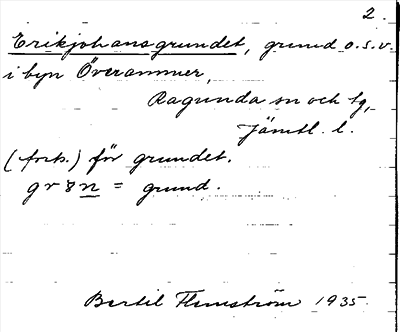 2.
Erikjohansgrundet, grund o.s.v.
i byn Överammer,
Ragunda sn och tg,
Jämtl. l.
(forts.) för grundet.
gr8n = grund.
Bertil Flemström 1935.